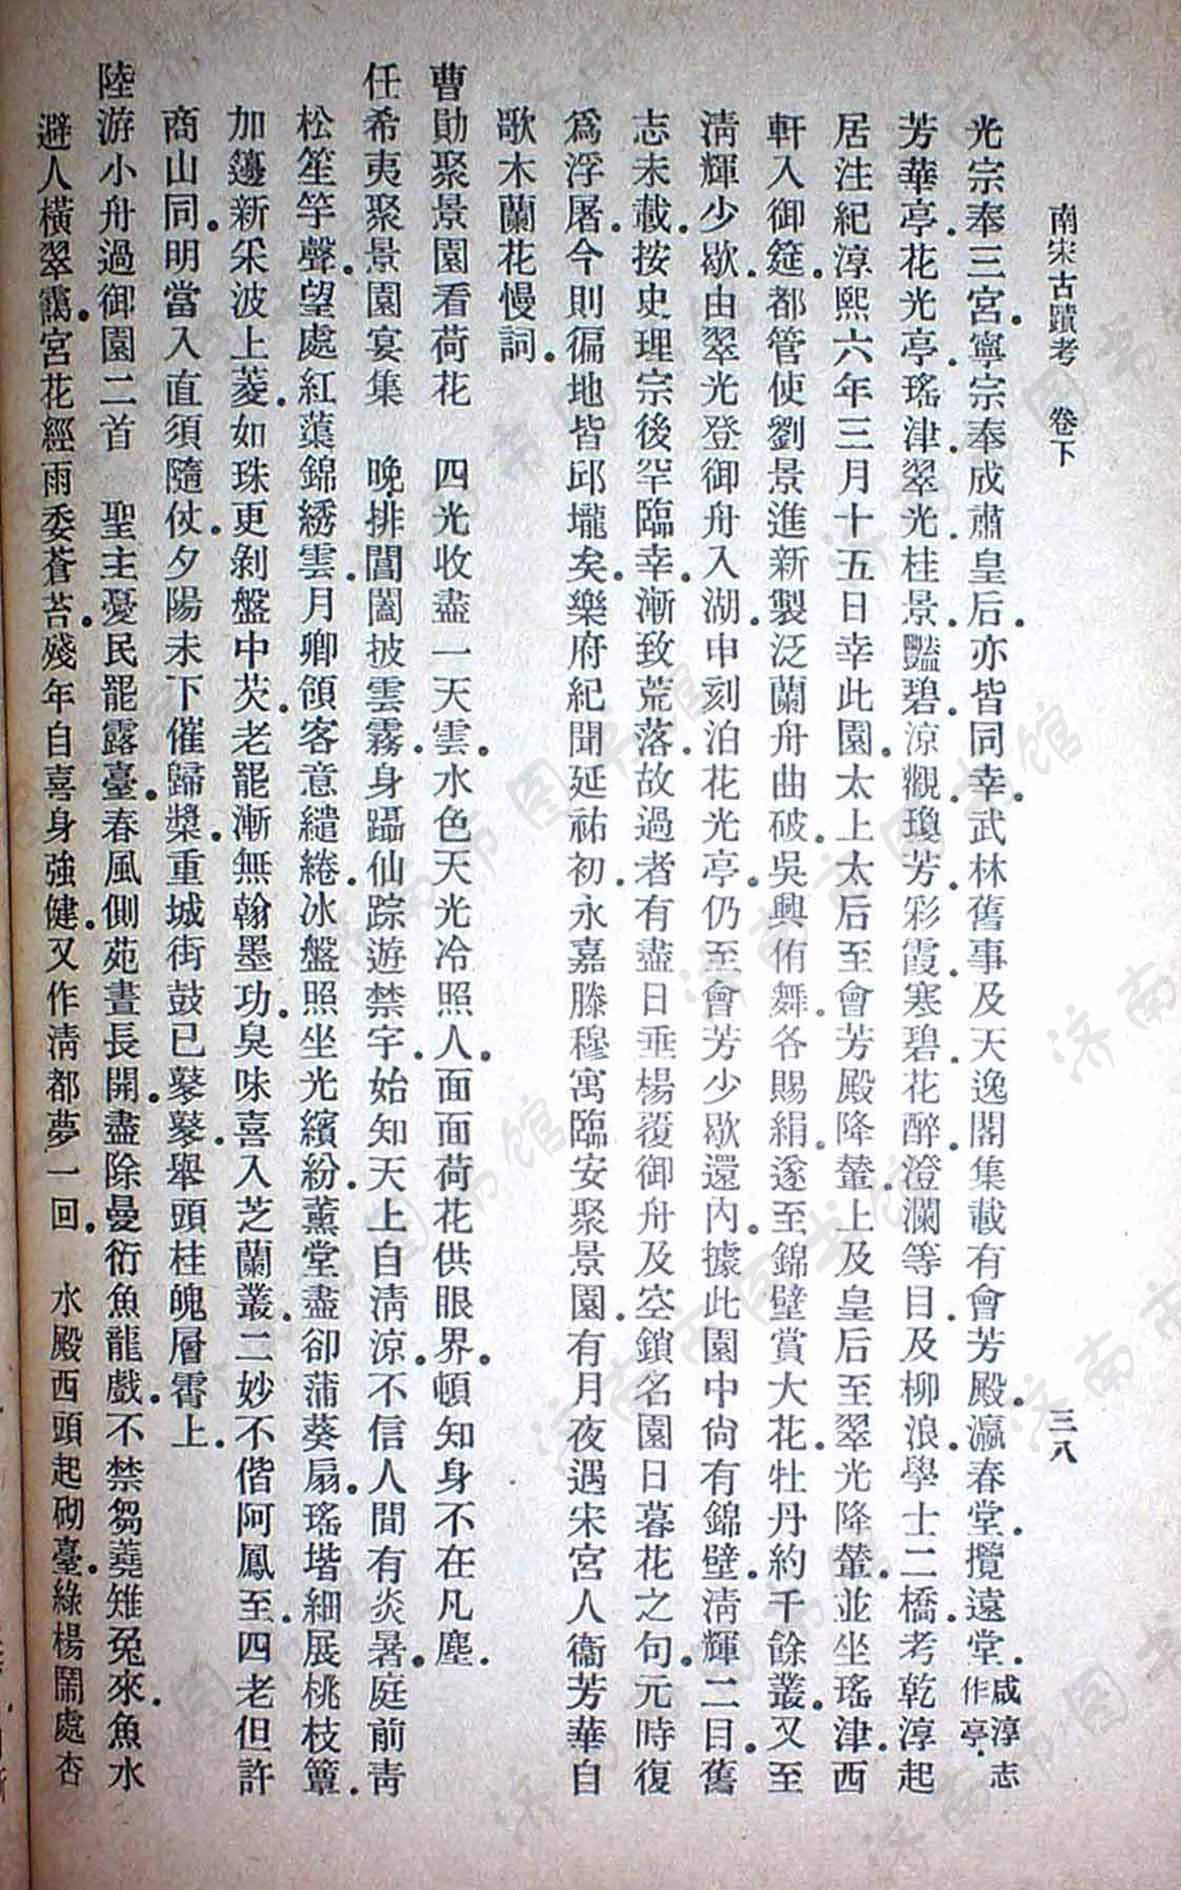 南宋古蹟考 卷下 三八
光宗奉三宮。寧宗奉成肅皇后。亦皆同幸。武林舊事及天逸閣集載有會芳殿。瀛春堂。攬遠堂。咸淳志作亭。
芳華亭。花光亭。瑤津。翠光。桂景。豔碧。涼觀。瓊芳。彩霞。寒碧。花醉。澄瀾等目。及柳浪。學士二橋。考乾淳起
居注紀淳熙六年三月十五日幸此園。太上太后至會芳殿降輦。上及皇后至翠光降輦。並坐瑤津。西
軒入御筵。都管使劉景進新製泛蘭舟曲破。吳興侑舞。各賜絹。遂至錦壁賞大花。牡丹約千餘叢。又至
淸輝少歇。由翠光登御舟入湖。申刻泊花光亭。仍至會芳少歇還內。據此園中尙有錦壁。淸輝二目。舊
志未載。按史理宗後罕臨幸。漸致荒落。故過者有盡日垂楊覆御舟及空鎖名園日暮花之句。元時復
爲浮屠。今則徧地皆邱壠矣。樂府紀聞延祐初。永嘉滕穆寓臨安聚景園。有月夜遇宋宮人衞芳華自
歌木蘭花慢詞。
曹勛聚景園看荷花 四光收盡一天雲。水色天光冷照人。面面荷花供眼界。頓知身不在凡塵。
任希夷聚景園宴集 晚排閶闔披雲霧。身躡仙踪遊禁宇。始知天上自淸涼。不信人間有炎暑。庭前靑
松笙竽聲。望處紅蕖錦綉雲。月卿領客意繾綣。冰盤照坐光繽紛。薰堂盡卻蒲葵扇。瑤堦細展桃枝簟。
加籩新采波上菱。如珠更剝盤中芡。老罷漸無翰墨功。臭味喜入芝蘭叢。二妙不偕阿鳳至。四老但許
商山同。明當入直須隨仗。夕陽未下催歸槳。重城街鼓已鼕鼕。舉頭桂魄層霄上。
陸游小舟過御園二首 聖主憂民罷露臺。春風側苑晝長開。盡除曼衍魚龍戲。不禁芻蕘雉兔來。魚水
避人橫翠靄。宮花經雨委蒼苔。殘年自喜身強健。又作淸都夢一回。 水殿西頭起砌臺。綠楊鬧處杏